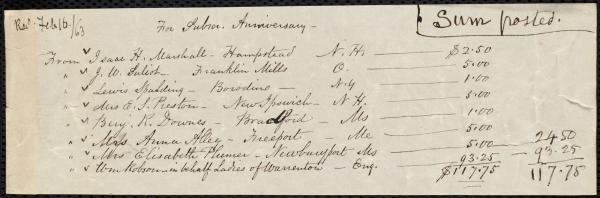 Rec'd Feb 16/63
For Subsn. Anniversary -
Sum posted.
From " Isaac H. Marshall - Hampstead N. H. $2.50
" " J. W. Suliot - Franklin Mills O. 5.00
" " Lewis Spalding - Borodino - N.Y 1.00
" " Mrs E. S. Preston - New Ipswich - N H. 5.00
" " Benj. R. Downes - Bradford - Ms 1.00
" " Mrs Anna Alley - Freeport - Me 5.00
" " Mrs Elisabeth Plumer - Newburyport Ms 5.00 - 24.50
" " Wm Robson - in behalf Ladies of Warrenton - Eng. 93.25 - 93.25
$117.75 117.75